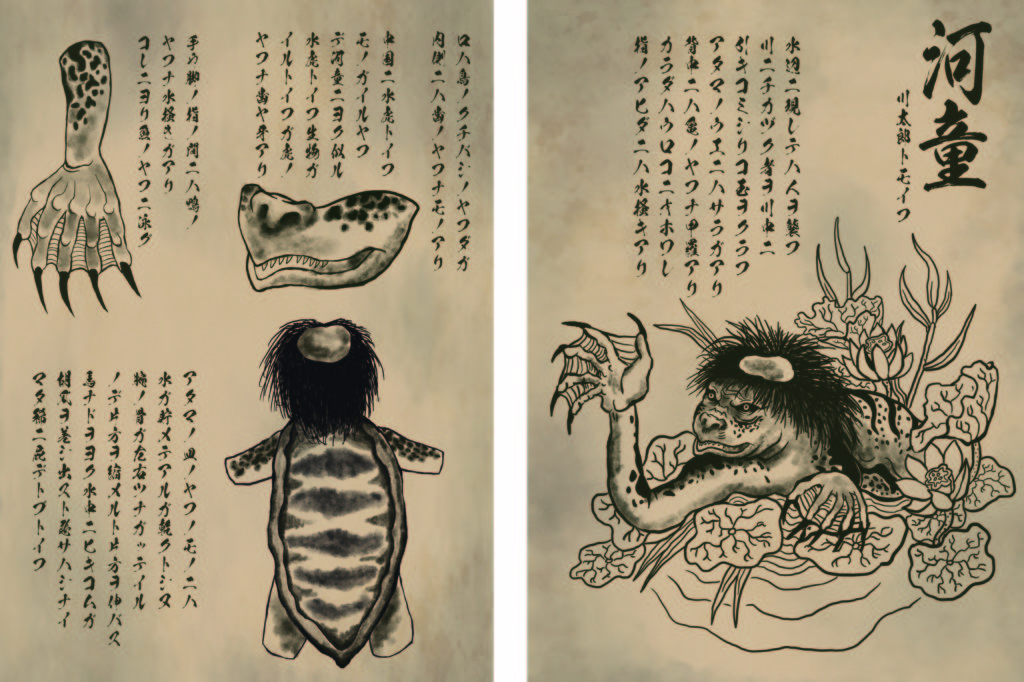 河童
川太郎トモイフ
水辺ニ現レテハ人ヲ襲フ
川ニチカヅク者ヲ川中ニ
引キコミシリコ玉ヲクラフ
アタマノウエニハサラガアリ
背中ニハ亀ノヤフナ甲羅アリ
カラダハウロコニオホワレ
指ノアヒダニハ水掻キアリ
口ハ鳥ノクチバシノヤフダガ
内側ニハ歯ノヤフナモノアリ
中国ニ水虎トイフ
モノガイルヤフ
デ河童ニヨク似ル
水虎トイフ生物ガ
イルトイフガ虎ノ
ヤフナ歯ヤ牙アリ
手や脚ノ指ノ間ニハ鴨ノ
ヤフナ水掻きガアリ
コレニヨリ魚ノヤフニ泳グ
アタマノ皿ノヤフノモノニハ
水ガ貯メテアルガ乾クトシヌ
腕ノ骨ガ左右ツナガッテイル
ノデ片方ヲ縮メルト片方ヲ伸バス
馬ナドヲヨク水中ニヒキコムガ
マタ稀ニ屁デトブトイフ